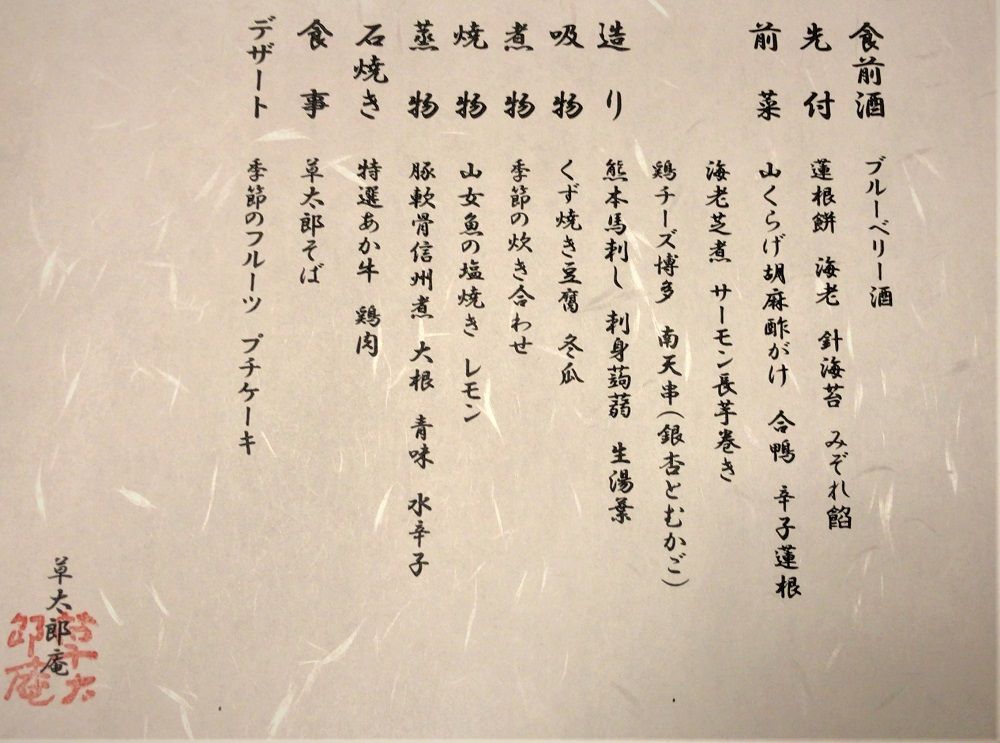 食前酒 ブルーベリー酒
先付 蓮根餅 海老 針海苔 みぞれ餡
前菜 山くらげ胡麻酢がけ 合鴨 辛子蓮根
海老芝煮 サーモン長芋巻き
鶏チーズ博多 南天串(銀杏とむかご)
造り 熊本馬刺し 刺身蒟蒻 生湯葉
吸物 くず焼き豆腐 冬瓜
煮物 季節の炊き合わせ
焼物 山女魚の塩焼き レモン
蒸物 豚軟骨信州煮 大根 青味 水辛子
石焼き 特選あか牛 鶏肉
食事 草太郎そば
デザート 季節のフルーツ プチケーキ
草太郎庵